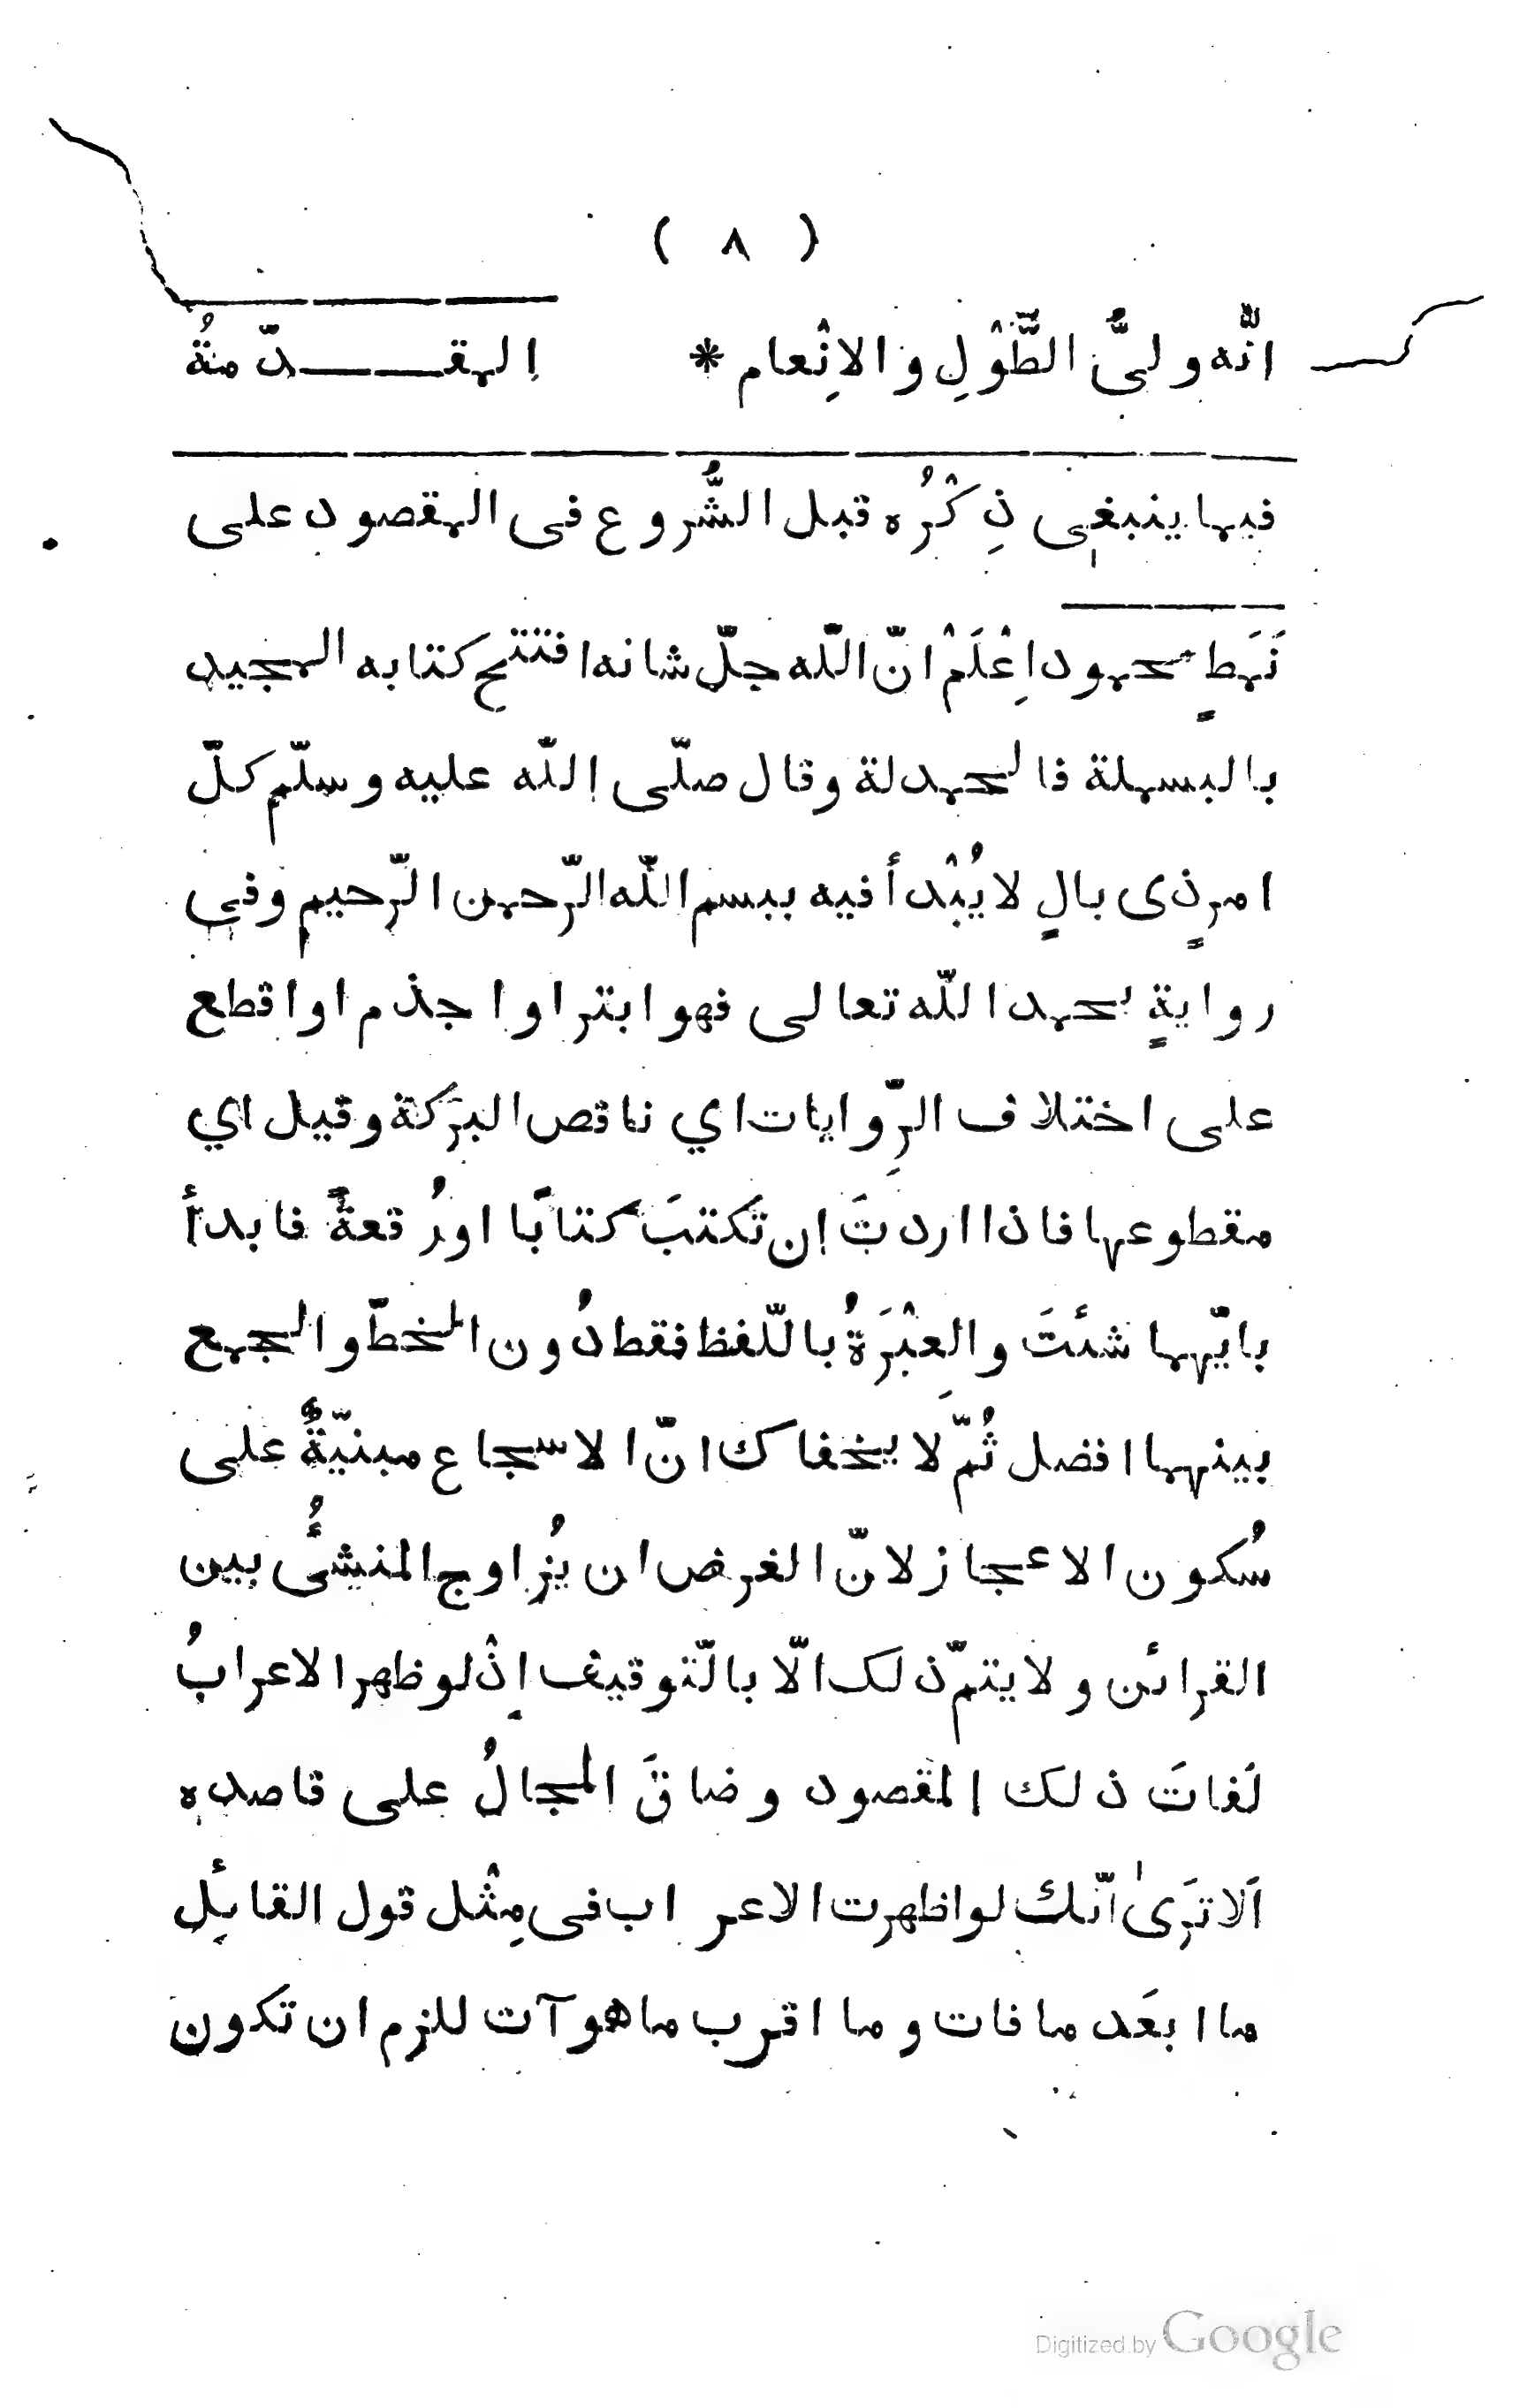 ( ٨ )
انّه ولىُّ الطَّوْلِ والاِنْعام * المقـــدّمةُ
فيما ينبغى ذِكْرُه قبل الشُّروع فى المقصود على
نَمَطٍ محمود اِعْلَمْ انّ اللّه جلّ شانه افتتح كتابه المجيد
بالبسملة فالحمدلة وقال صلّى اللّه عليه وسلّم كلّ
امرٍ ذى بالٍ لا يُبْدأ فيه ببسم اللّه الرّحمن الرّحيم وفي
روايةٍ بحمد اللّه تعالى فهو ابتر او اجذم او اقطع
على اختلاف الرِّوايات اي ناقص البَرَكة وقيل اي
مقطوعها فاذا اردتَ ان تكتبَ كتابًا اورُقعةً فابدأ
بايّهما شئتَ والعِبْرَةُ باللّفظ فقط دُون الخطّ والجمع
بينهما افضل ثُمّ لا يخفاك انّ الاسجاع مبنيّةٌ على
سُكون الاعجاز لانّ الغرض ان يُزاوج المنشئُ بين
القرائن ولا يتمّ ذلك الّا بالتّوقيف اِذْ لو ظهر الاعرابُ
لَفاتَ ذلك المقصود وضاقَ المجالُ على قاصده
اَلا تَرىٰ انّك لو اظهرت الاعراب فى مِثْل قول القائِل
ما ابعَد ما فات وما اقرب ما هو آت للزم ان تكون
Digitized by Google